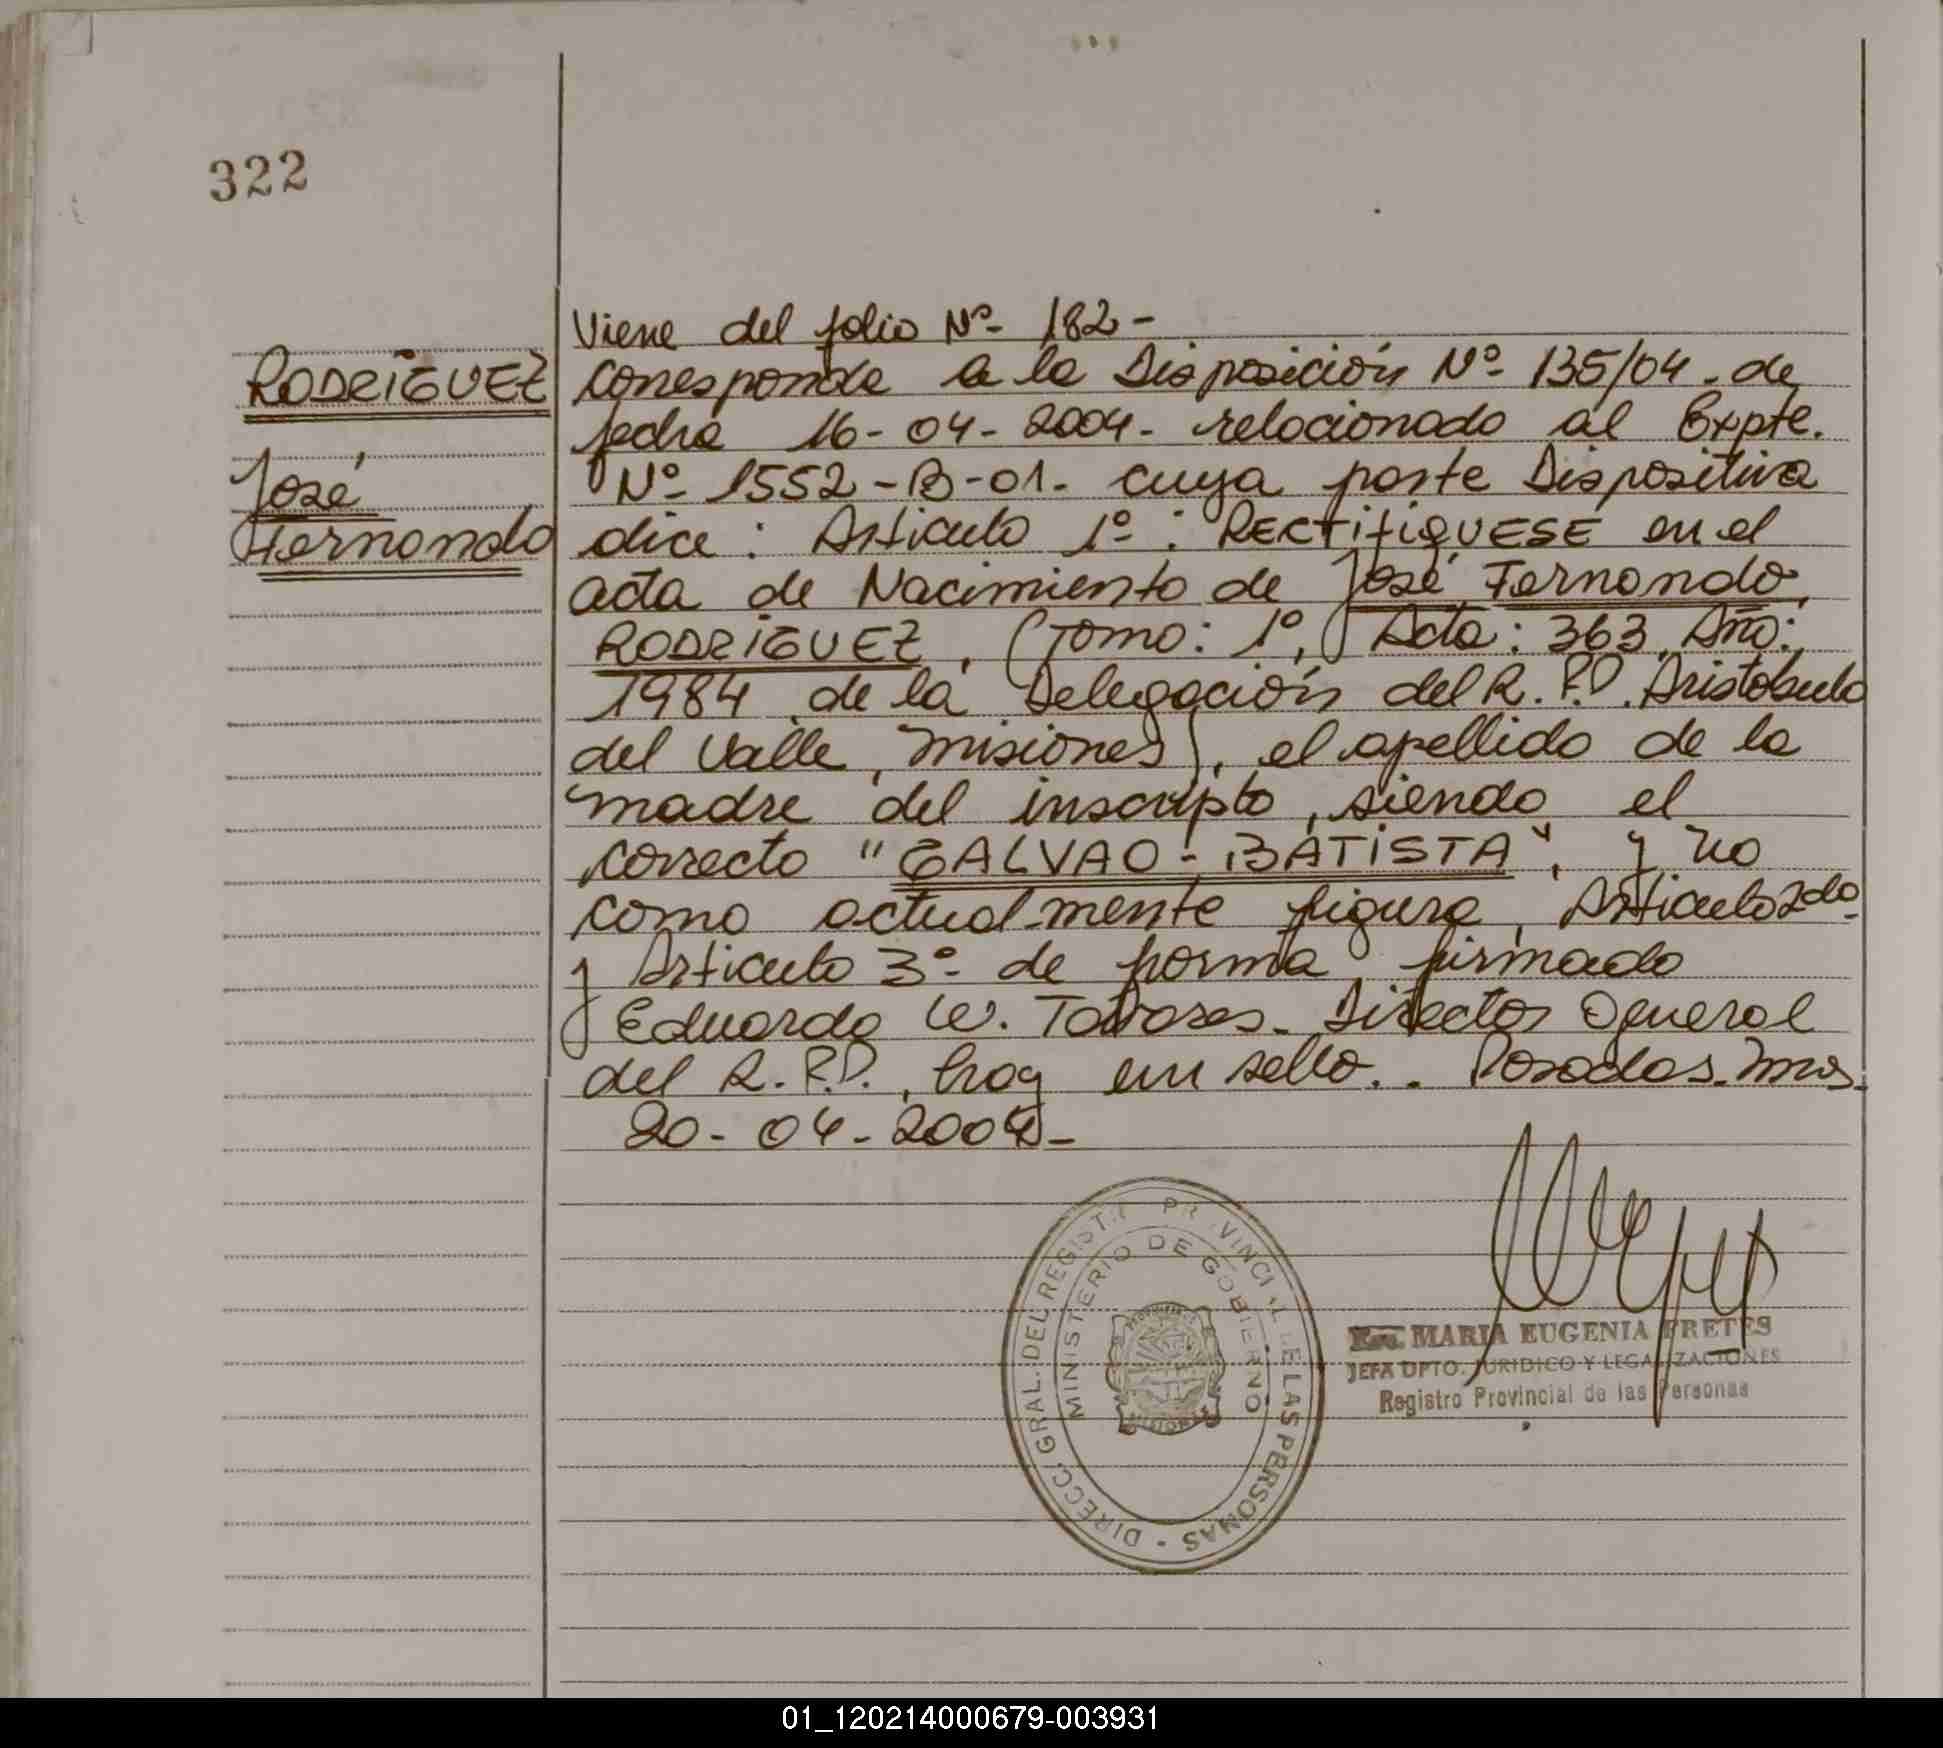 322
RODRIGUEZ
José
Fernando
Viene del folio Nº- 182-
corresponde a la Disposición Nº- 135/04- de
fecha 16-04-2004- relacionado al Expte.
Nº- 1552-B-01- cuya parte Dispositiva
dice: Articulo 1º-: RECTIFIQUESE en el
acta de Nacimiento de José Fernando,
RODRIGUEZ, (Tomo: 1º, Acta: 363, Año:
1984, de la Delegación del R.P.P. Aristobulo
del Valle, Misiones), el apellido de la
madre del inscripto, siendo el
correcto "GALVAO-BATISTA", y no
como actualmente figura, Articulo 2do-
y Articulo 3º- de forma, firmado
Eduardo W. Tavares- Director General
del R.P.P., hay un sello.- Posadas-Mns-
20-04-2004-
DIRECC. GRAL. DEL REGISTRO PROVINCIAL DE LAS PERSONAS -
MINISTERIO DE GOBIERNO
MISIONES
MARIA EUGENIA FRETES
JEFA DPTO. JURIDICO Y LEGALIZACIONES
Registro Provincial de las Personas
01_120214000679-003931